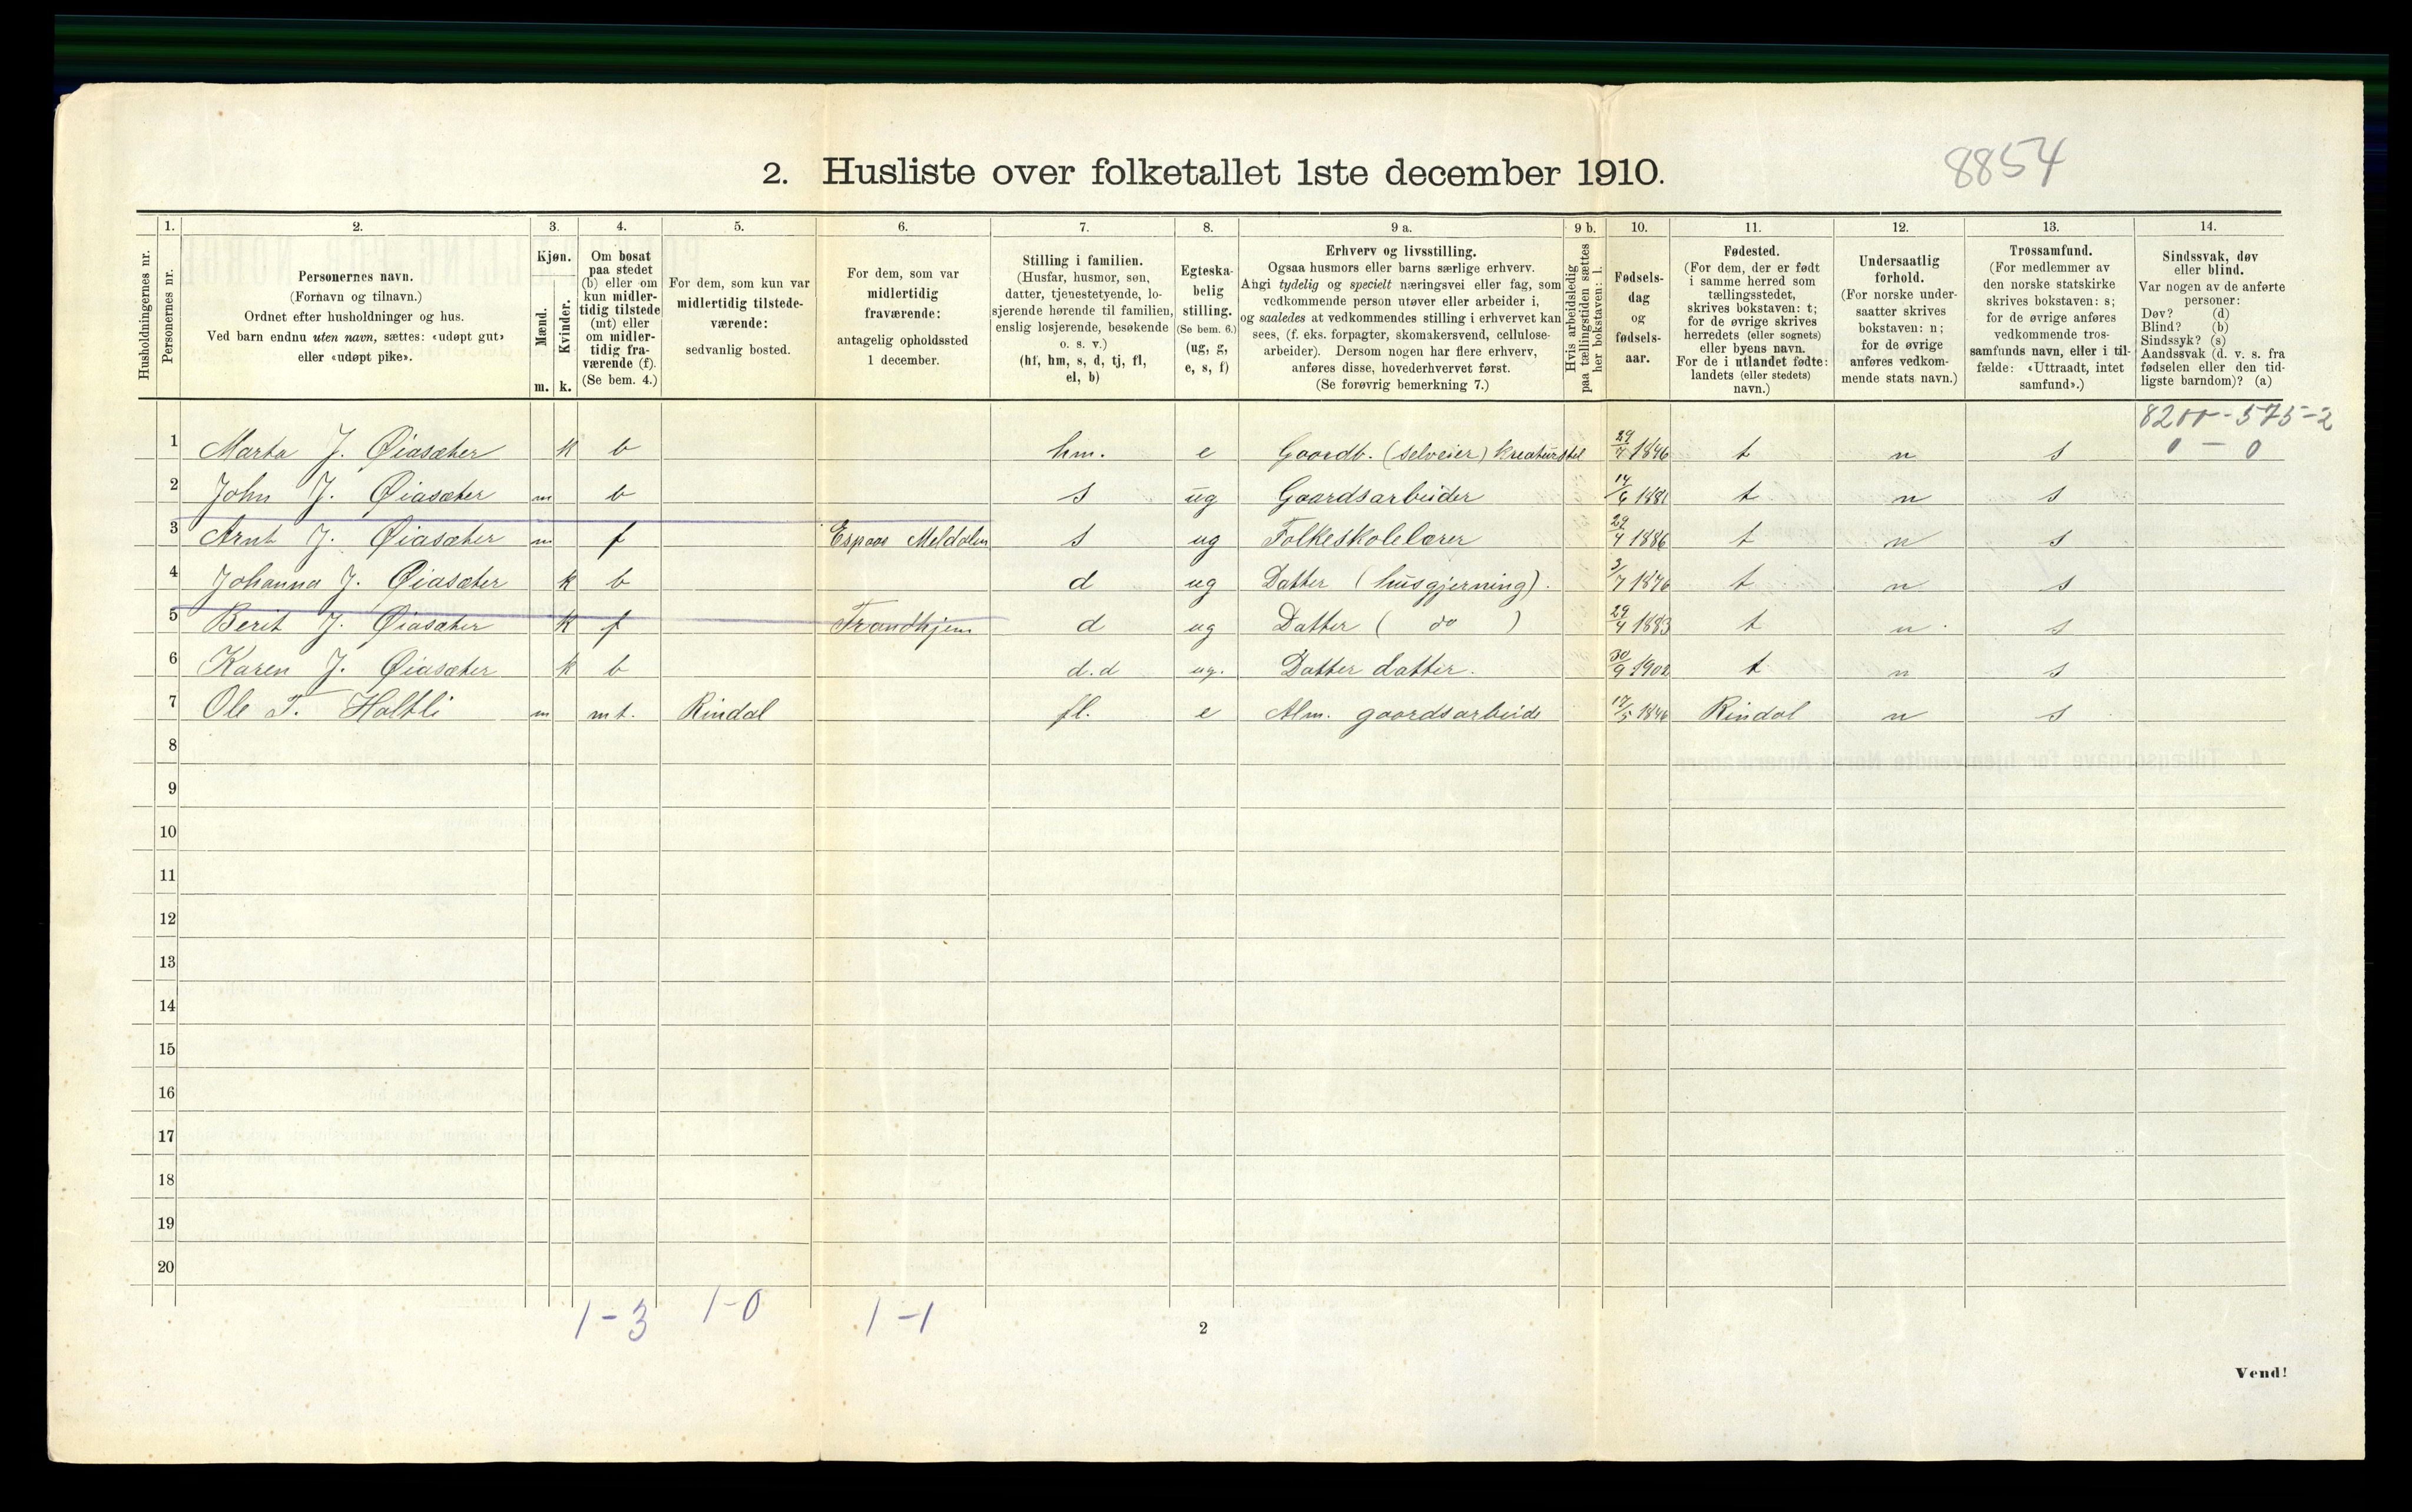 8854
2. Husliste over folketallet 1ste december 1910.
Husholdningernes nr.
1.
Personernes nr.
2.
Personernes navn.
(Fornavn og tilnavn.)
Ordnet efter husholdninger og hus.
Ved barn endnu uten navn, sættes: «udøpt gut»
eller «udøpt pike».
3.
Kjøn.
Mænd.
Kvinder.
m. k.
4.
Om bosat
paa stedet
(b) eller om
kun midler-
tidig tilstede
(mt) eller
om midler-
tidig fra-
værende (f).
(Se bem. 4.)
5.
For dem, som kun var
midlertidig tilstede-
værende:
sedvanlig bosted.
6.
For dem, som var
midlertidig
fraværende:
antagelig opholdssted
1 december.
7.
Stilling i familien.
(Husfar, husmor, søn,
datter, tjenestetyende, lo-
sjerende hørende til familien,
enslig losjerende, besøkende
o. s. v.)
(hf, hm, s, d, tj, fl,
el, b)
8.
Egteska-
belig
stilling.
(Se bem. 6.)
(ug, g,
e, s, f)
9 a.
Erhverv og livsstilling.
Ogsaa husmors eller barns særlige erhverv.
Angi tydelig og specielt næringsvei eller fag, som
vedkommende person utøver eller arbeider i,
og saaledes at vedkommendes stilling i erhvervet kan
sees, (f. eks. forpagter, skomakersvend, cellulose-
arbeider). Dersom nogen har flere erhverv,
anføres disse, hovederhvervet først.
(Se forøvrig bemerkning 7.)
9 b.
Hvis arbeidsledig
paa tællingstiden sættes
her bokstaven: l.
10.
Fødsels-
dag
og
fødsels-
aar.
11.
Fødested.
(For dem, der er født
i samme herred som
tællingsstedet,
skrives bokstaven: t;
for de øvrige skrives
herredets (eller sognets)
eller byens navn.
For de i utlandet fødte:
landets (eller stedets)
navn.)
12.
Undersaatlig
forhold.
(For norske under-
saatter skrives
bokstaven: n;
for de øvrige
anføres vedkom-
mende stats navn.)
13.
Trossamfund.
(For medlemmer av
den norske statskirke
skrives bokstaven: s;
for de øvrige anføres
vedkommende tros-
samfunds navn, eller i til-
fælde: «Uttraadt, intet
samfund».)
14.
Sindssvak, døv
eller blind.
Var nogen av de anførte
personer:
Døv? (d)
Blind? (b)
Sindssyk? (s)
Aandssvak (d. v. s. fra
fødselen eller den tid-
ligste barndom)? (a)
575-2
0 - 0
1 Marta J. Øiasæter k b hm. e Gaardb. (selveier) kreaturstel 29/7 1846 t n s
2 John J. Øiasæter m b s ug Gaardsarbeider 14/6 1881 t n s
3 Arnt J. Øiasæter m f Meldalen s ug Folkeskolelærer 29/4 1886 t n s
4 Johanna J. Øiasæter k b d ug Datter (husgjerning). 3/7 1876 t n s
5 Berit J. Øiasæter k f Trondhjem d ug Datter ( do ) 29/4 1883 t n s
6 Karen J. Øiasæter k b d.d ug. Datter datter. 30/9 1902 t n s
7 Ole T. Holtli m mt. Rindal fl. e Alm. gaardsarbeide 17/5 1846 Rindal n s
8
9
10
11
12
13
14
15
16
17
18
19
20
1-3 1-0 1-1
2
Vend!